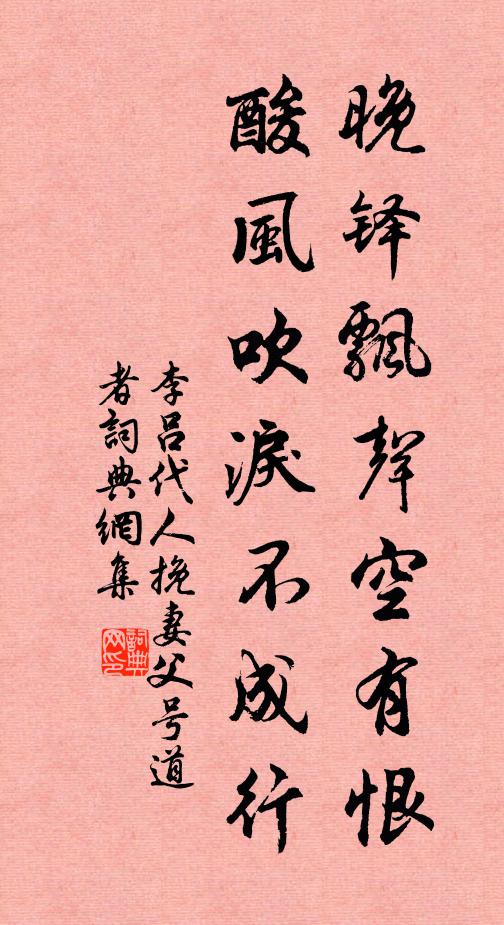 晚铎飄聲空有恨
酸風吹淚不成行
李呂代人挽妻父号道
者詞典網集
詞典
网印